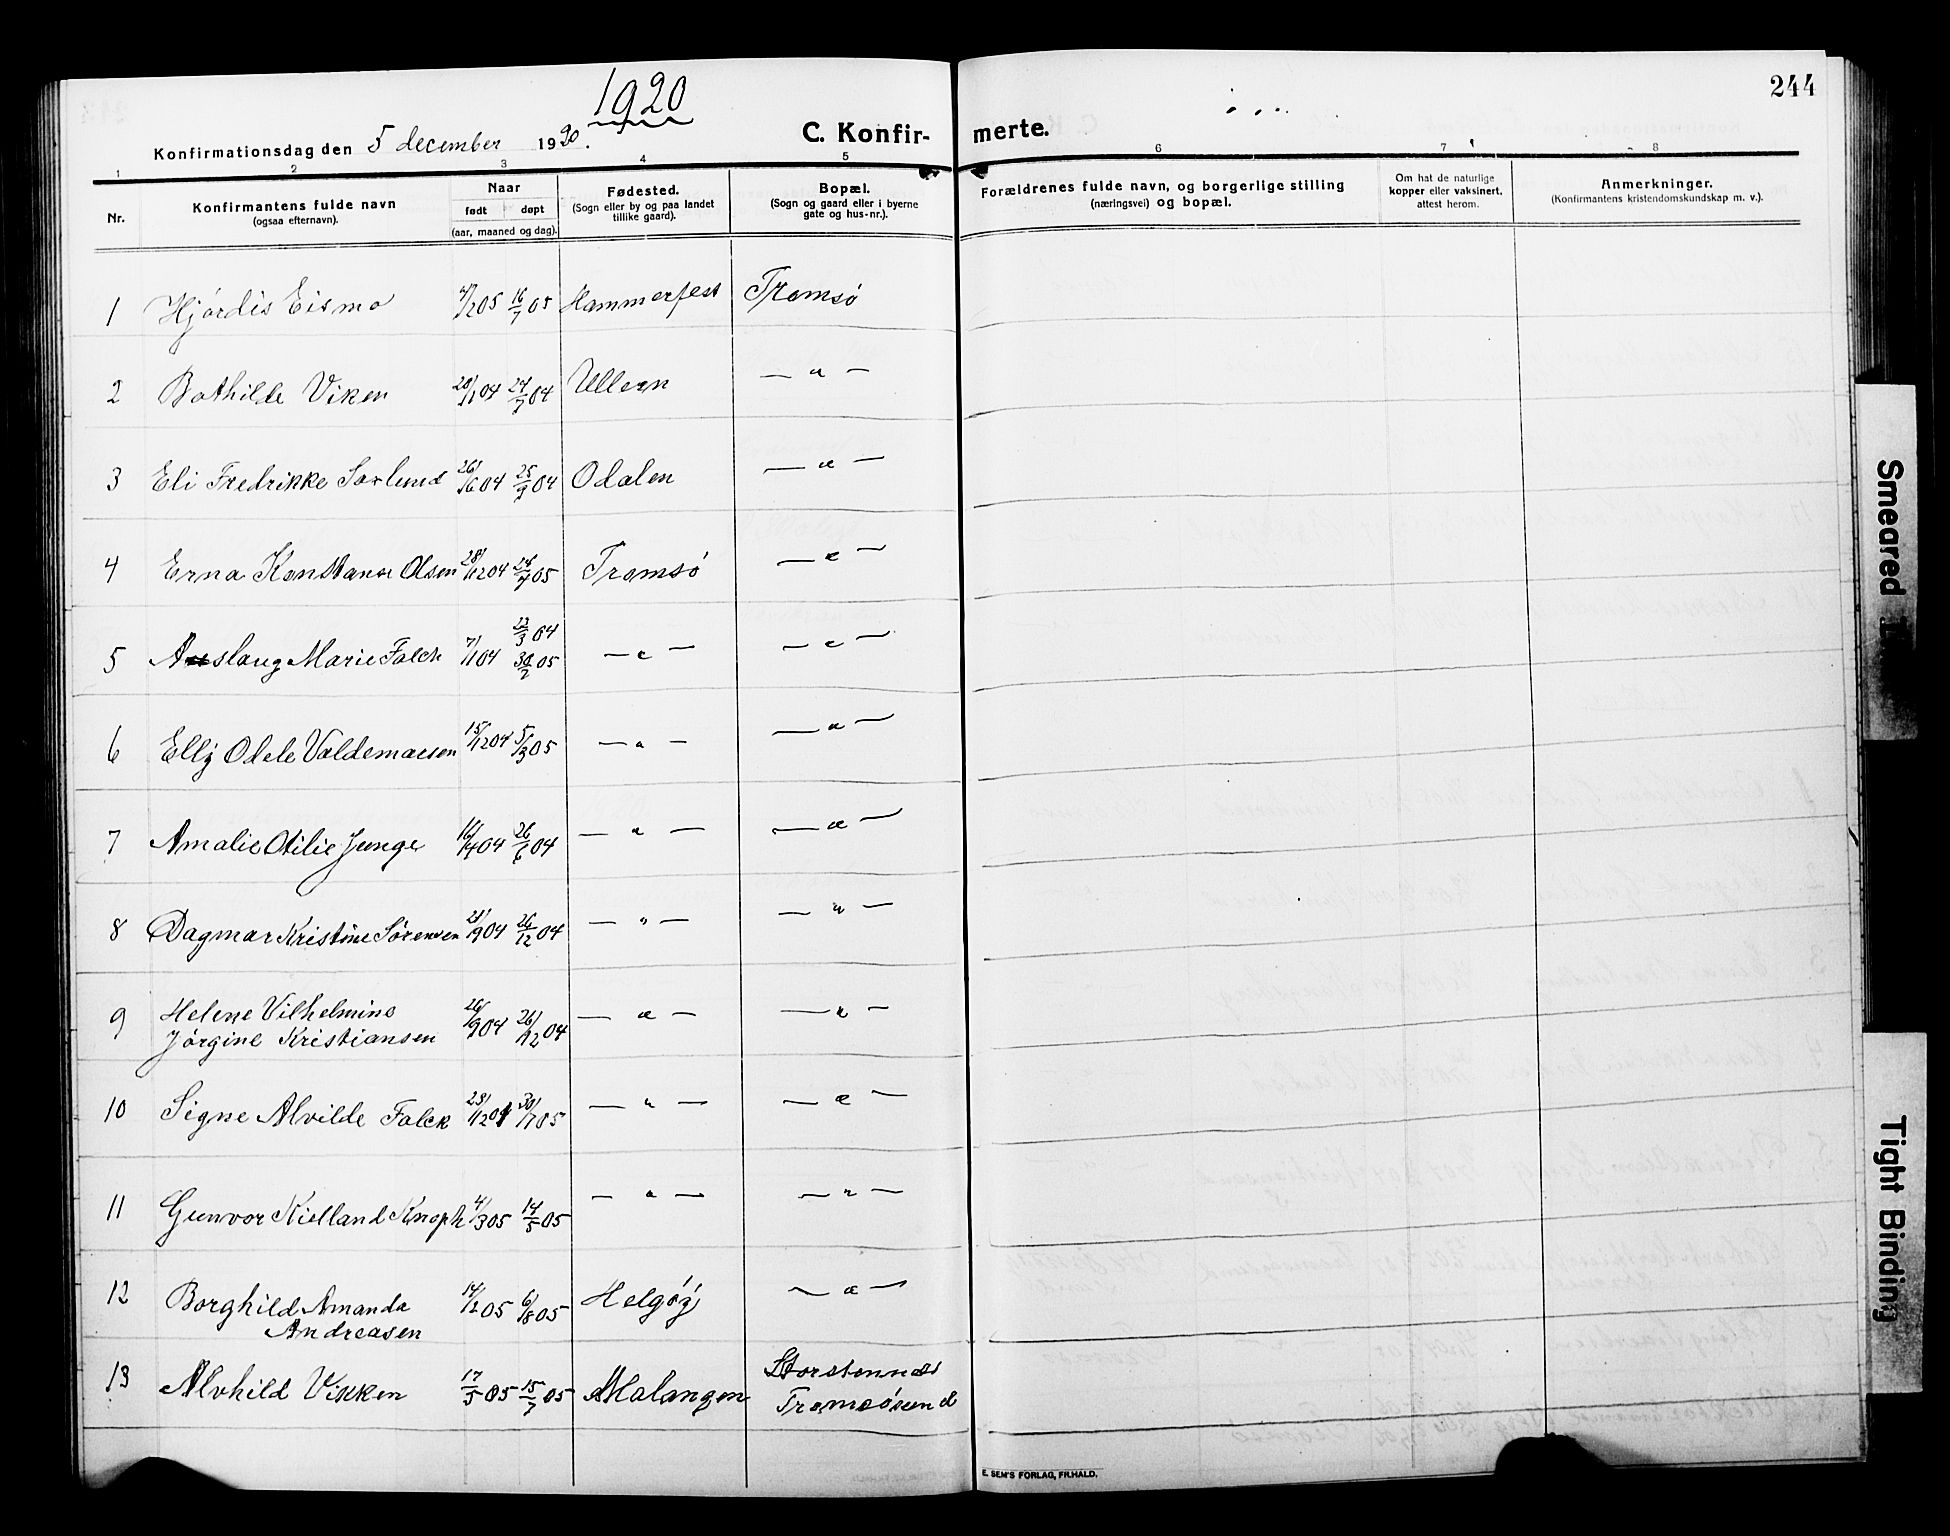 244
1920
Konfirmationsdag den 5 december 1920.
C. Konfir- merte.
1 2 3 4 5 6 7 8
Nr.
Konfirmantens fulde navn
(ogsaa efternavn).
Naar
født døpt
(aar, maaned og dag).
Fødested.
(Sogn eller by og paa landet
tillike gaard).
Bopæl.
(Sogn og gaard eller i byerne
gate og hus-nr.).
Forældrenes fulde navn, og borgerlige stilling
(næringsvei) og bopæl.
Om hat de naturlige
kopper eller vaksinert,
attest herom.
Anmerkninger.
(Konfirmantens kristendomskundskap m. v.).
1 Hjördis Eismo 4/2 05 16/7 05 Hammerfest Tromsö
2 Bothilde Viken 20/1 04 24/7 04 Ullern — " —
3 Eli Fredrikke Sörlund 26/6 04 25/9 04 Odalen — " —
4 Erna Konstanse Olsen 28/12 04 24/4 05 Tromsö — " —
5 Aslaug Marie Falch 7/1 04 13/3 04 30/2 05 — " — — " —
6 Elly Odele Valdemarsen 15/12 04 5/3 05 — " — — " —
7 Amalie Otilie Junge 16/4 04 26/6 04 — " — — " —
8 Dagmar Kristine Sörensen 21/9 04 26/12 04 — " — — " —
9 Helene Vilhelmine
Jörgine Kristiansen 26/9 04 26/12 04 — " — — " —
10 Signe Alvilde Falck 23/12 04 30/7 05 — " — — " —
11 Gunvor Kielland Knoph 4/3 05 14/5 05 — " — — " —
12 Borghild Amanda
Andreasen 14/2 05 6/8 05 Helgöy — " —
13 Alvhild Vikken 17/5 05 15/7 05 Malangen Storstennes
Tromsösund
E. SEM'S FORLAG, FR.HALD.
Smeared
Tight Binding